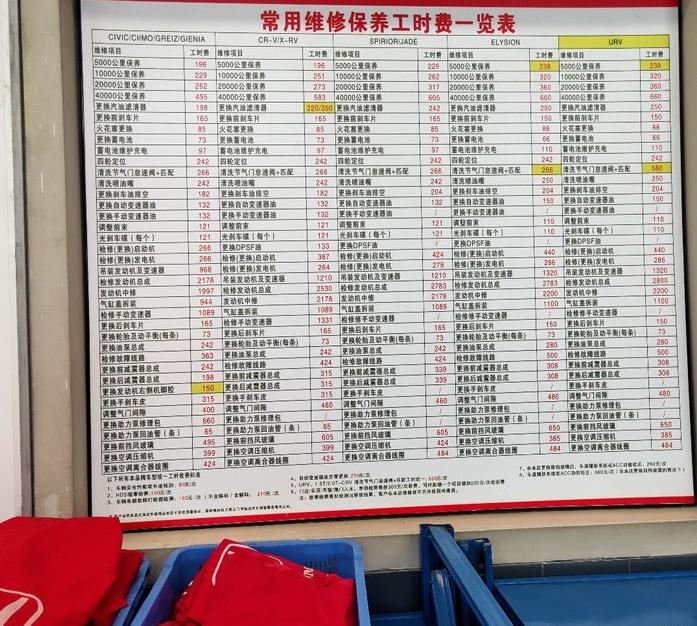 常用维修保养工时费一览表
CIVIC/CIIMO/GREIZ/GIENIA CR-V/X-RV SPIRIOR/JADE ELYSION URV
维修项目 工时费 维修项目 工时费 维修项目 工时费 维修项目 工时费 维修项目 工时费
5000公里保养 196 5000公里保养 196 5000公里保养 229 5000公里保养 238 5000公里保养 238
10000公里保养 229 10000公里保养 251 10000公里保养 262 10000公里保养 320 10000公里保养 320
20000公里保养 262 20000公里保养 273 20000公里保养 317 20000公里保养 360 20000公里保养 360
40000公里保养 495 40000公里保养 583 40000公里保养 605 40000公里保养 660 40000公里保养 660
更换汽油滤清器 198 更换汽油滤清器 220/350 更换汽油滤清器 242 更换汽油滤清器 250 更换汽油滤清器 250
更换前刹车片 165 更换前刹车片 165 更换前刹车片 165 更换前刹车片 150 更换前刹车片 150
火花塞更换 85 火花塞更换 85 火花塞更换 85 火花塞更换 88 火花塞更换 88
更换蓄电池 73 更换蓄电池 73 更换蓄电池 73 更换蓄电池 66 更换蓄电池 66
蓄电池维护充电 97 蓄电池维护充电 97 蓄电池维护充电 97 蓄电池维护充电 110 蓄电池维护充电 110
四轮定位 242 四轮定位 242 四轮定位 242 四轮定位 242 四轮定位 242
清洗节气门怠速阀+匹配 266 清洗节气门怠速阀+匹配 266 清洗节气门怠速阀+匹配 266 清洗节气门怠速阀+匹配 266 清洗节气门怠速阀+匹配 580
清洗喷油嘴 242 清洗喷油嘴 242 清洗喷油嘴 242 清洗喷油嘴 250 清洗喷油嘴 250
更换刹车油排空 182 更换刹车油排空 182 更换刹车油排空 204 更换刹车油排空 204 更换刹车油排空 204
更换自动变速器油 132 更换自动变速器油 132 更换自动变速器油 132 更换自动变速器油 150 更换自动变速器油 150
更换手动变速器油 132 更换手动变速器油 132 更换手动变速器油 / 更换手动变速器油 / 更换手动变速器油 /
调整前束 121 调整前束 121 调整前束 121 调整前束 110 调整前束 110
光刹车碟（每个） 121 光刹车碟（每个） 121 光刹车碟（每个） 121 光刹车碟（每个） 110 光刹车碟（每个） 110
更换DPSF油 更换DPSF油 更换DPSF油 / 更换DPSF油 /
检修(更换)启动机 266 检修(更换)启动机 387 检修(更换)启动机 424 检修(更换)启动机 440 检修(更换)启动机 440
检修(更换)发电机 266 检修(更换)发电机 264 检修(更换)发电机 278 检修(更换)发电机 286 检修(更换)发电机 286
吊装发动机及变速器 968 吊装发动机及变速器 1210 吊装发动机及变速器 1210 吊装发动机及变速器 1320 吊装发动机及变速器 1320
检修发动机总成 2178 检修发动机总成 2530 检修发动机总成 2783 检修发动机总成 2783 检修发动机总成 2800
发动机中修 1997 发动机中修 2178 发动机中修 2178 发动机中修 2200 发动机中修 2200
气缸盖拆装 944 气缸盖拆装 1089 气缸盖拆装 1089 气缸盖拆装 1100 气缸盖拆装 1100
检修手动变速器 1089 检修手动变速器 1331 检修手动变速器 / 检修手动变速器 / 检修手动变速器 /
更换后刹车片 165 更换后刹车片 165 更换后刹车片 165 更换后刹车片 150 更换后刹车片 150
更换轮胎及动平衡(每条) 73 更换轮胎及动平衡(每条) 73 更换轮胎及动平衡(每条) 73 更换轮胎及动平衡(每条) 73 更换轮胎及动平衡(每条) 73
更换油泵总成 242 更换油泵总成 242 更换油泵总成 242 更换油泵总成 280 更换油泵总成 280
检修故障线路 363 检修故障线路 424 检修故障线路 424 检修故障线路 500 检修故障线路 500
更换前减震器总成 242 更换前减震器总成 315 更换前减震器总成 315 更换前减震器总成 308 更换前减震器总成 308
更换后减震器总成 198 更换后减震器总成 339 更换后减震器总成 339 更换后减震器总成 308 更换后减震器总成 308
更换发动机右侧机脚胶 150
更换手刹车皮 315 更换手刹车皮 315 更换手刹车皮 315 更换手刹车皮 / 更换手刹车皮 315
调整气门间隙 400 调整气门间隙 460 调整气门间隙 460 调整气门间隙 480 调整气门间隙 480
更换助力泵修理包 660 更换助力泵修理包 / 更换助力泵修理包 / 更换助力泵修理包 / 更换助力泵修理包 /
更换助力泵回油管（条） 65 更换助力泵回油管（条） 65 更换助力泵回油管（条） 65 更换助力泵回油管（条） / 更换助力泵回油管（条）
更换前挡风玻璃 495 更换前挡风玻璃 605 更换前挡风玻璃 605 更换前挡风玻璃 650 更换前挡风玻璃 650
更换空调压缩机 399 更换空调压缩机 399 更换空调压缩机 385 更换空调压缩机 385 更换空调压缩机 385
更换空调离合器线圈 424 更换空调离合器线圈 424 更换空调离合器线圈 484 更换空调离合器线圈 484 更换空调离合器线圈 484
以下所有本品牌车型统一工时收费标准
1、车辆安全性能或外泄检测：80元/次
2、HDS健康检测:100元/次